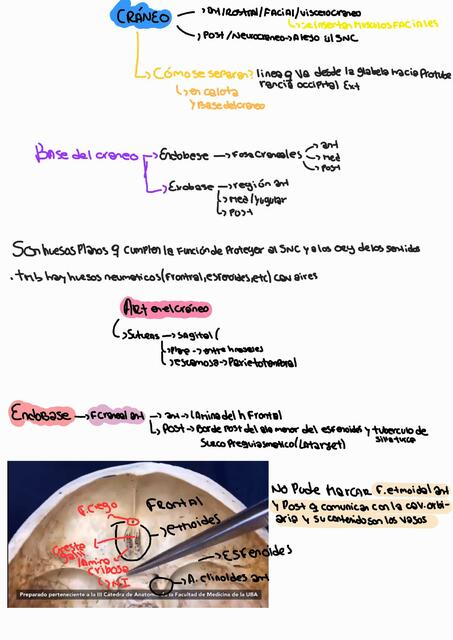 CRÁNEO
→ Ant/Rostral/Facial/viscerocraneo
→ Se insertan musculos Faciales
→ Post/Neurocraneo → Alojo al SNC
→ Cómo se separan? linea q va desde la glabela hacia Protube
rancia occipital Ext
→ en calota
y Base del craneo
Base del craneo → Endobase → Fosa craneales → ant
→ med
→ post
→ Exobase → región ant
→ med/yugular
→ post
Son huesos Planos q cumplen la Función de Proteger al SNC y a los org de los sentidos
. tmb hay huesos neumaticos (frontal, esfenoides, etc) cav aires
Art en el cráneo
→ Suturas → sagital/
→ plana → entre h nasales
→ escamosa → Parietotemporal
Endobase → F craneal ant → ant → lamina del h Frontal
→ Post → Borde Post del ala menor del esfenoides y tuberculo de
silla turca
Surco Prequiasmatico (Latarjet)
NO Pude Marcar F. etmoidal ant
y Post q comunican con la cav. orbi-
aria y su contenido son los vasos
F. ciego
FRONTAL
→ etmoides
Cresta
Galli
lamina
cribosa
→ N I
→ ESFENOIDES
→ A. clinoides ant
Preparado perteneciente a la III Cátedra de Anatomía de la Facultad de Medicina de la UBA